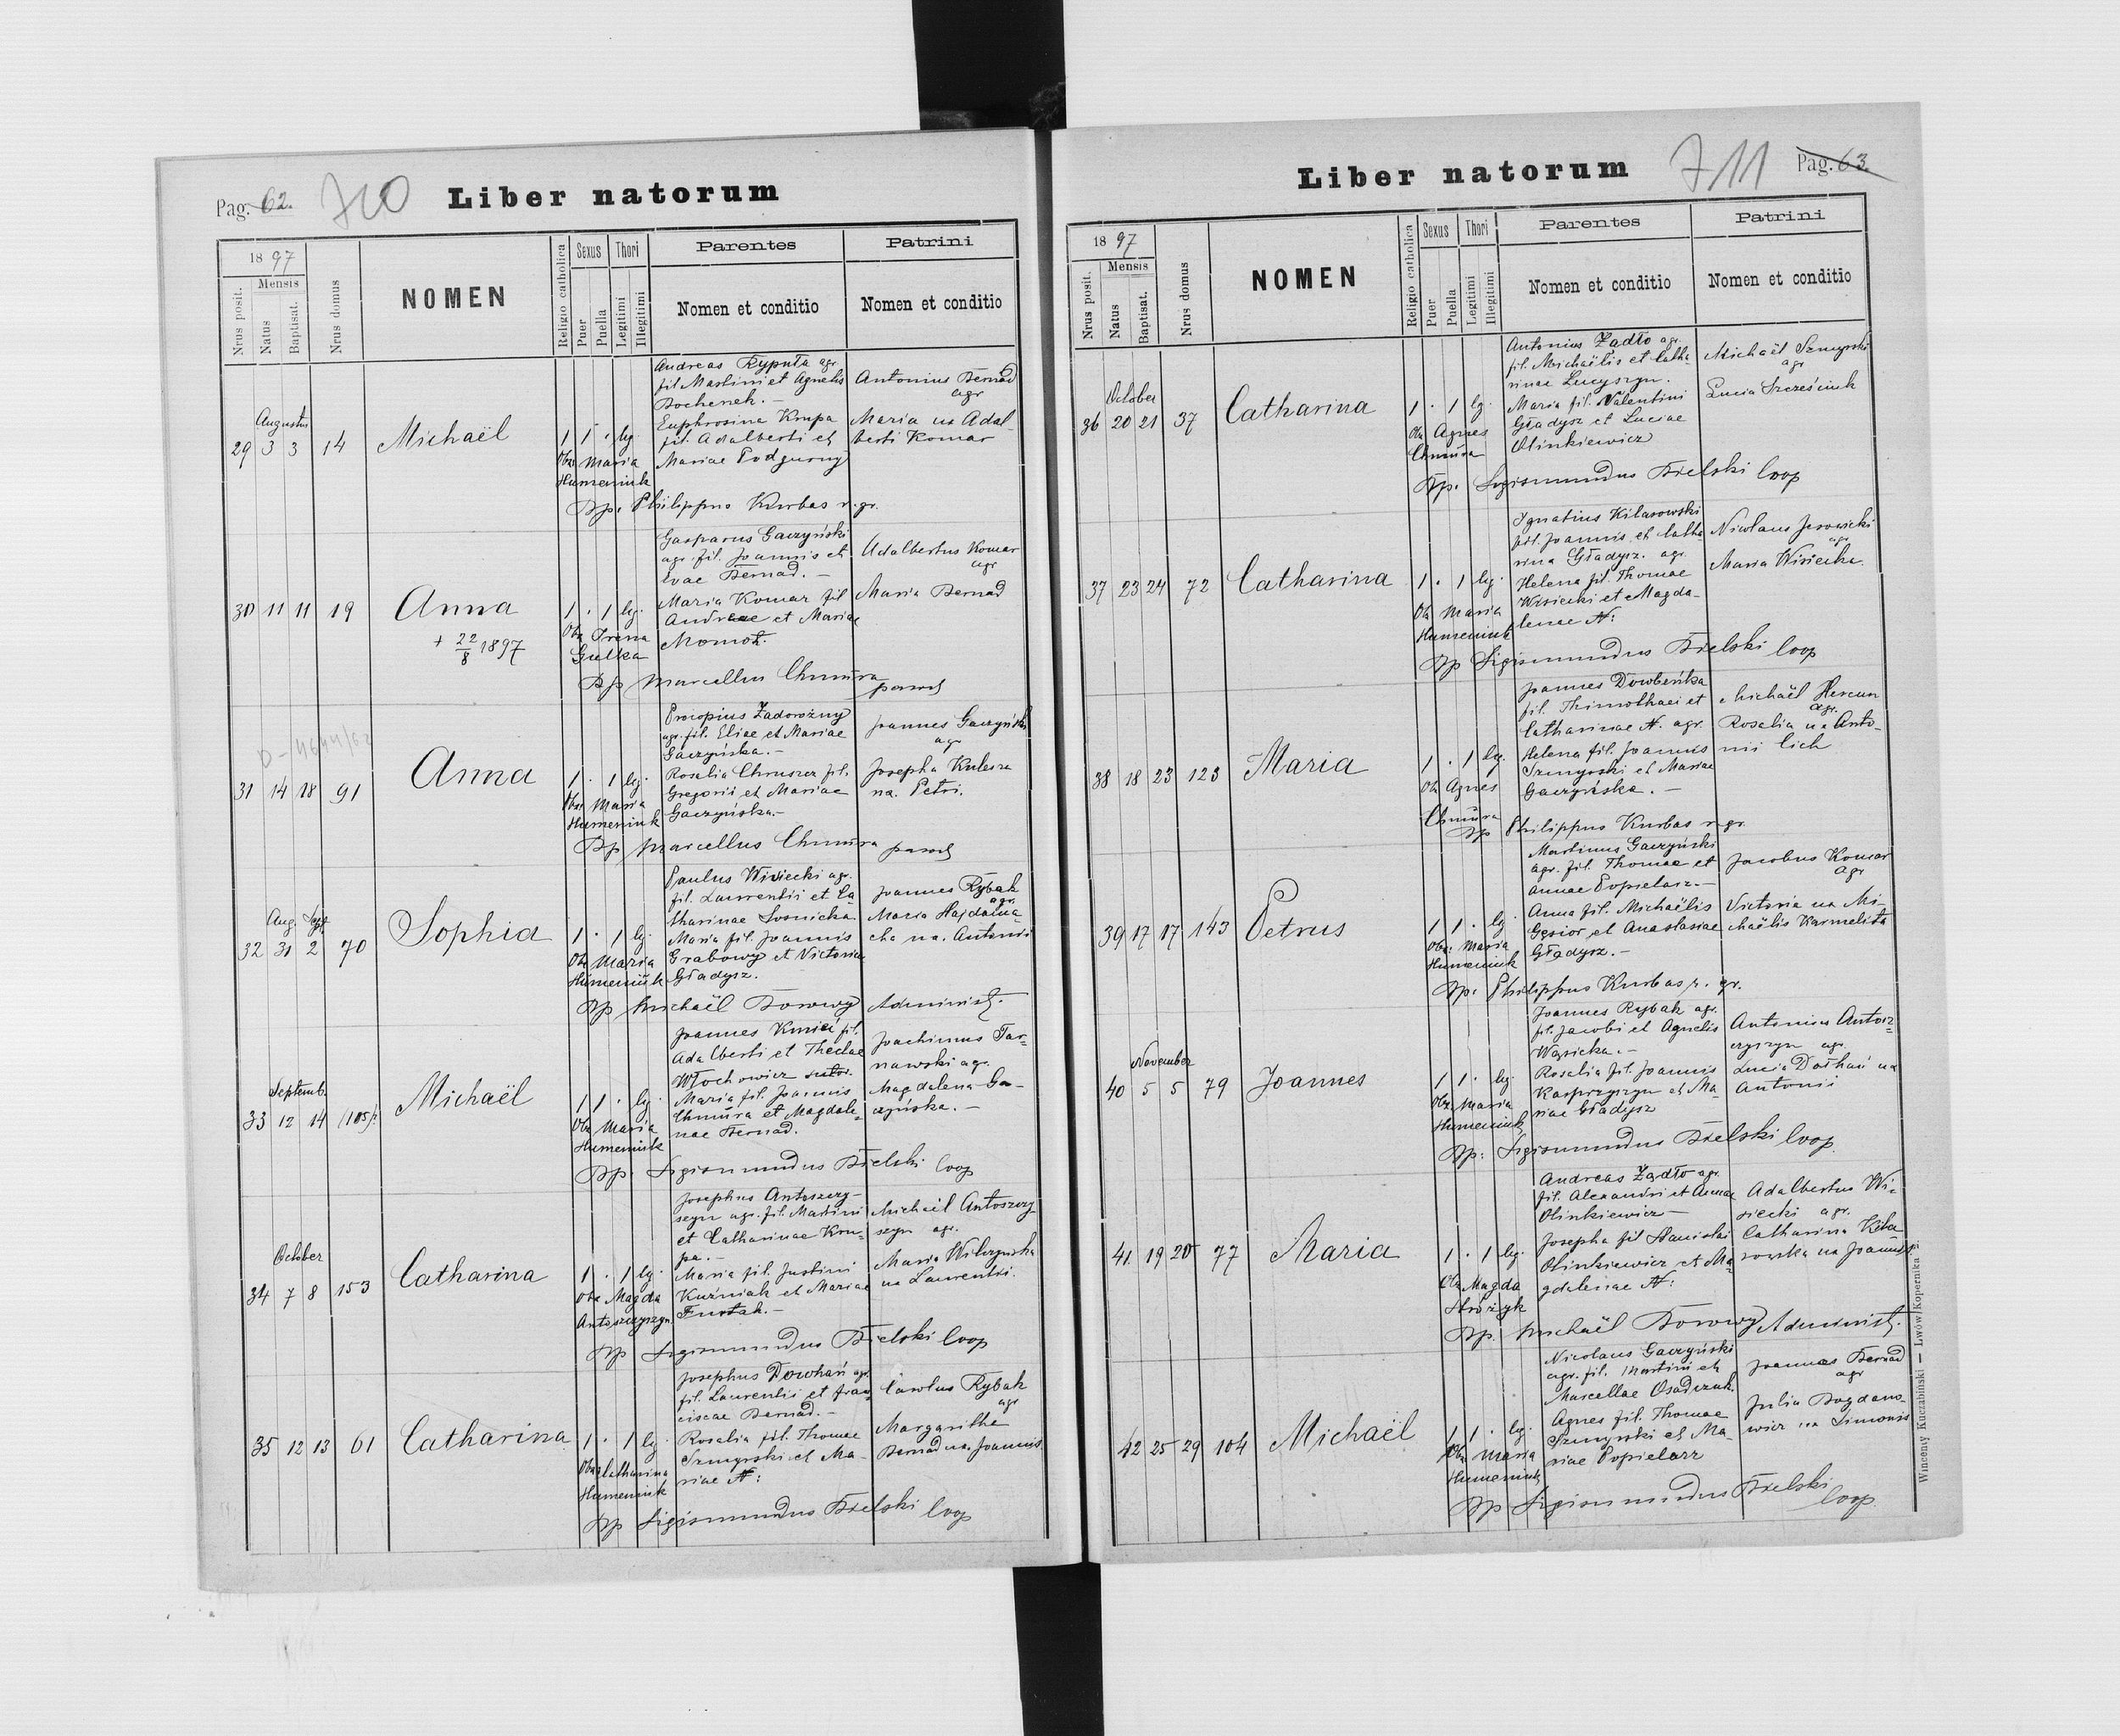 Pag. 62. 710 Liber natorum
1897
Mensis
Nrus posit.
Natus
Baptisat.
Nrus domus
NOMEN
Religio catholica
Sexus
Puer
Puella
Thori
Legitimi
Illegitimi
Parentes
Nomen et conditio
Patrini
Nomen et conditio
Augustus
29 3 3 14 Michaël
1 1 · lg
Obs. Maria
Humeniuk
Andreas Rypuła agr.
fil. Martini et Agnetis
Bochenek. —
Euphrosina Krupa
fil. Adalberti et
Mariae Podgurny
Antonius Bernad
agr
Maria ux Adal-
berti Komar
Bp. Philippus Kurbas r. gr.
30 11 11 19 Anna
+ 22/8 1897
1 · 1 lg.
Obs. Irena
Gulka
Gasparus Gaczyński
agr. fil. Joannis et
Evae Bernad. —
Maria Komar fil
Andreae et Mariae
Momot.
Adalbertus Komar
agr
Maria Bernad
Bp Marcellus Chmura
paroch
31 14 18 91 Anna
1 · 1 lg.
Obs. Maria
Humeniuk
Procopius Zadorożny
agr. fil. Eliae et Mariae
Gaczyńska. —
Rosalia Chruszcz fil.
Gregorii et Mariae
Gaczyńska. —
Joannes Gaczyński
agr
Josepha Kulesza
ux. Petri.
Bp Marcellus Chmura paroch
Aug. Sept.
32 31 2 70 Sophia
1 · 1 lg.
Obs Maria
Humeniuk
Paulus Wisiecki agr.
fil. Laurentii et Ca
tharinae Sosnicka
Maria fil. Joannis
Grabowy et Victoria
Gładysz.
Joannes Rybak
agr.
Maria Hajdama-
cha ux. Antonii
Bp Michaël Borowy Administ.
Septemb.
33 12 14 (105) Michaël
1 1 · lg.
Obs Maria
Humeniuk
Joannes Kmieć fil.
Adalberti et Theclae
Włochowicz sutor.
Maria fil. Joannis
Chmura et Magdale-
nae Bernad.
Joachimus Tar-
nawski agr.
Magdalena Ga-
czyńska. —
Bp. Sigismundus Bielski Coop
October
34 7 8 153 Catharina
1 · 1 lg.
Obs Magda
Antoszczyszyn
Josephus Antoszczy-
szyn agr. fil. Martini
et Catharinae Kru-
pa. —
Maria fil. Justini
Kuźniak et Mariae
Furtak. —
Michaël Antoszczy-
szyn agr.
Maria Wilczyńska
ux Laurentii.
Bp Sigismundus Bielski Coop
35 12 13 61 Catharina
1 · 1 lg.
Obs Catharina
Humeniuk
Josephus Dowhań agr.
fil. Laurentii et Fran
ciscae Bernad. —
Rosalia fil. Thomae
Szmyrski et Ma-
riae N:
Carolus Rybak
agr
Margarithe
Bernad ux. Joannis
Bp Sigismundus Bielski Coop
Liber natorum 711 Pag. 63.
1897
Mensis
Nrus posit.
Natus
Baptisat.
Nrus domus
NOMEN
Religio catholica
Sexus
Puer
Puella
Thori
Legitimi
Illegitimi
Parentes
Nomen et conditio
Patrini
Nomen et conditio
October
36 20 21 37 Catharina
1 · 1 lg.
Obs Agnes
Chmura
Antonius Żądło agr.
fil. Michaëlis et Catha
rinae Lucyszyn.
Maria fil. Valentini
Gładysz et Luciae
Olinkiewicz
Michaël Szmyrski
agr
Lucia Szcześciuk
Bp. Sigismundus Bielski Coop
37 23 24 72 Catharina
1 · 1 lg.
Obs Maria
Humeniuk
Ignatius Kilarowski
fil. Joannis et Catha
rina Gładysz. agr.
Helena fil. Thomae
Wisiecki et Magda-
lenae N:
Nicolaus Jarowicki
agr
Maria Wisiecka.
Bp Sigismundus Bielski Coop
38 18 23 123 Maria
1 · 1 lg.
Obs Agnes
Chmura
Joannes Dowbeńka
fil. Thimothaei et
Catharinae N. agr.
Helena fil. Joannis
Szmyrski et Mariae
Gaczyńska. —
Michaël Hercun
agr.
Rosalia ux Anto-
nii Cich
Bp Philippus Kurbas r. gr.
39 17 17 143 Petrus
1 1 · lg.
Obs. Maria
Humeniuk
Martinus Gaczyński
agr. fil. Thomae et
Annae Popielarz. —
Anna fil. Michaëlis
Gęsior et Anastasiae
Gładysz. —
Jacobus Komar
agr
Victoria ux Mi-
chaëlis Karmelita
Bp. Philippus Kurbas r. gr.
November
40 5 5 79 Joannes
1 1 · lg.
Obs. Maria
Humeniuk
Joannes Rybak agr.
fil. Jacobi et Agnetis
Wąsicka. —
Rosalia fil. Joannis
Kasprzyszyn et Ma-
riae Gładysz
Antonius Antosz-
czyszyn agr.
Lucia Dołhań ux
Antonii
Bp: Sigismundus Bielski Coop.
41. 19 20 77 Maria
1 · 1 lg.
Obs Magda
Stróżyk
Andreas Żądło agr.
fil. Alexandri et Annae
Olinkiewicz —
Josepha fil Stanislai
Olinkiewicz et Ma-
gdalenae N:
Adalbertus Wi-
siecki agr.
Catharina Kila
rowska ux Joannis
Bp. Michaël Borowy Administ.
42 25 29 104 Michaël
1 1 · lg.
Obs Maria
Humeniuk
Nicolaus Gaczyński
agr. fil. Martini et
Marcellae Osadczuk.
Agnes fil. Thomae
Szmyrski et Ma-
riae Popielarz
Joannes Bernad
agr
Julia Bogdano-
wicz ux Simonis
Bp Sigismundus Bielski
Coop.
Wincenty Kuczabiński — Lwów Kopernika